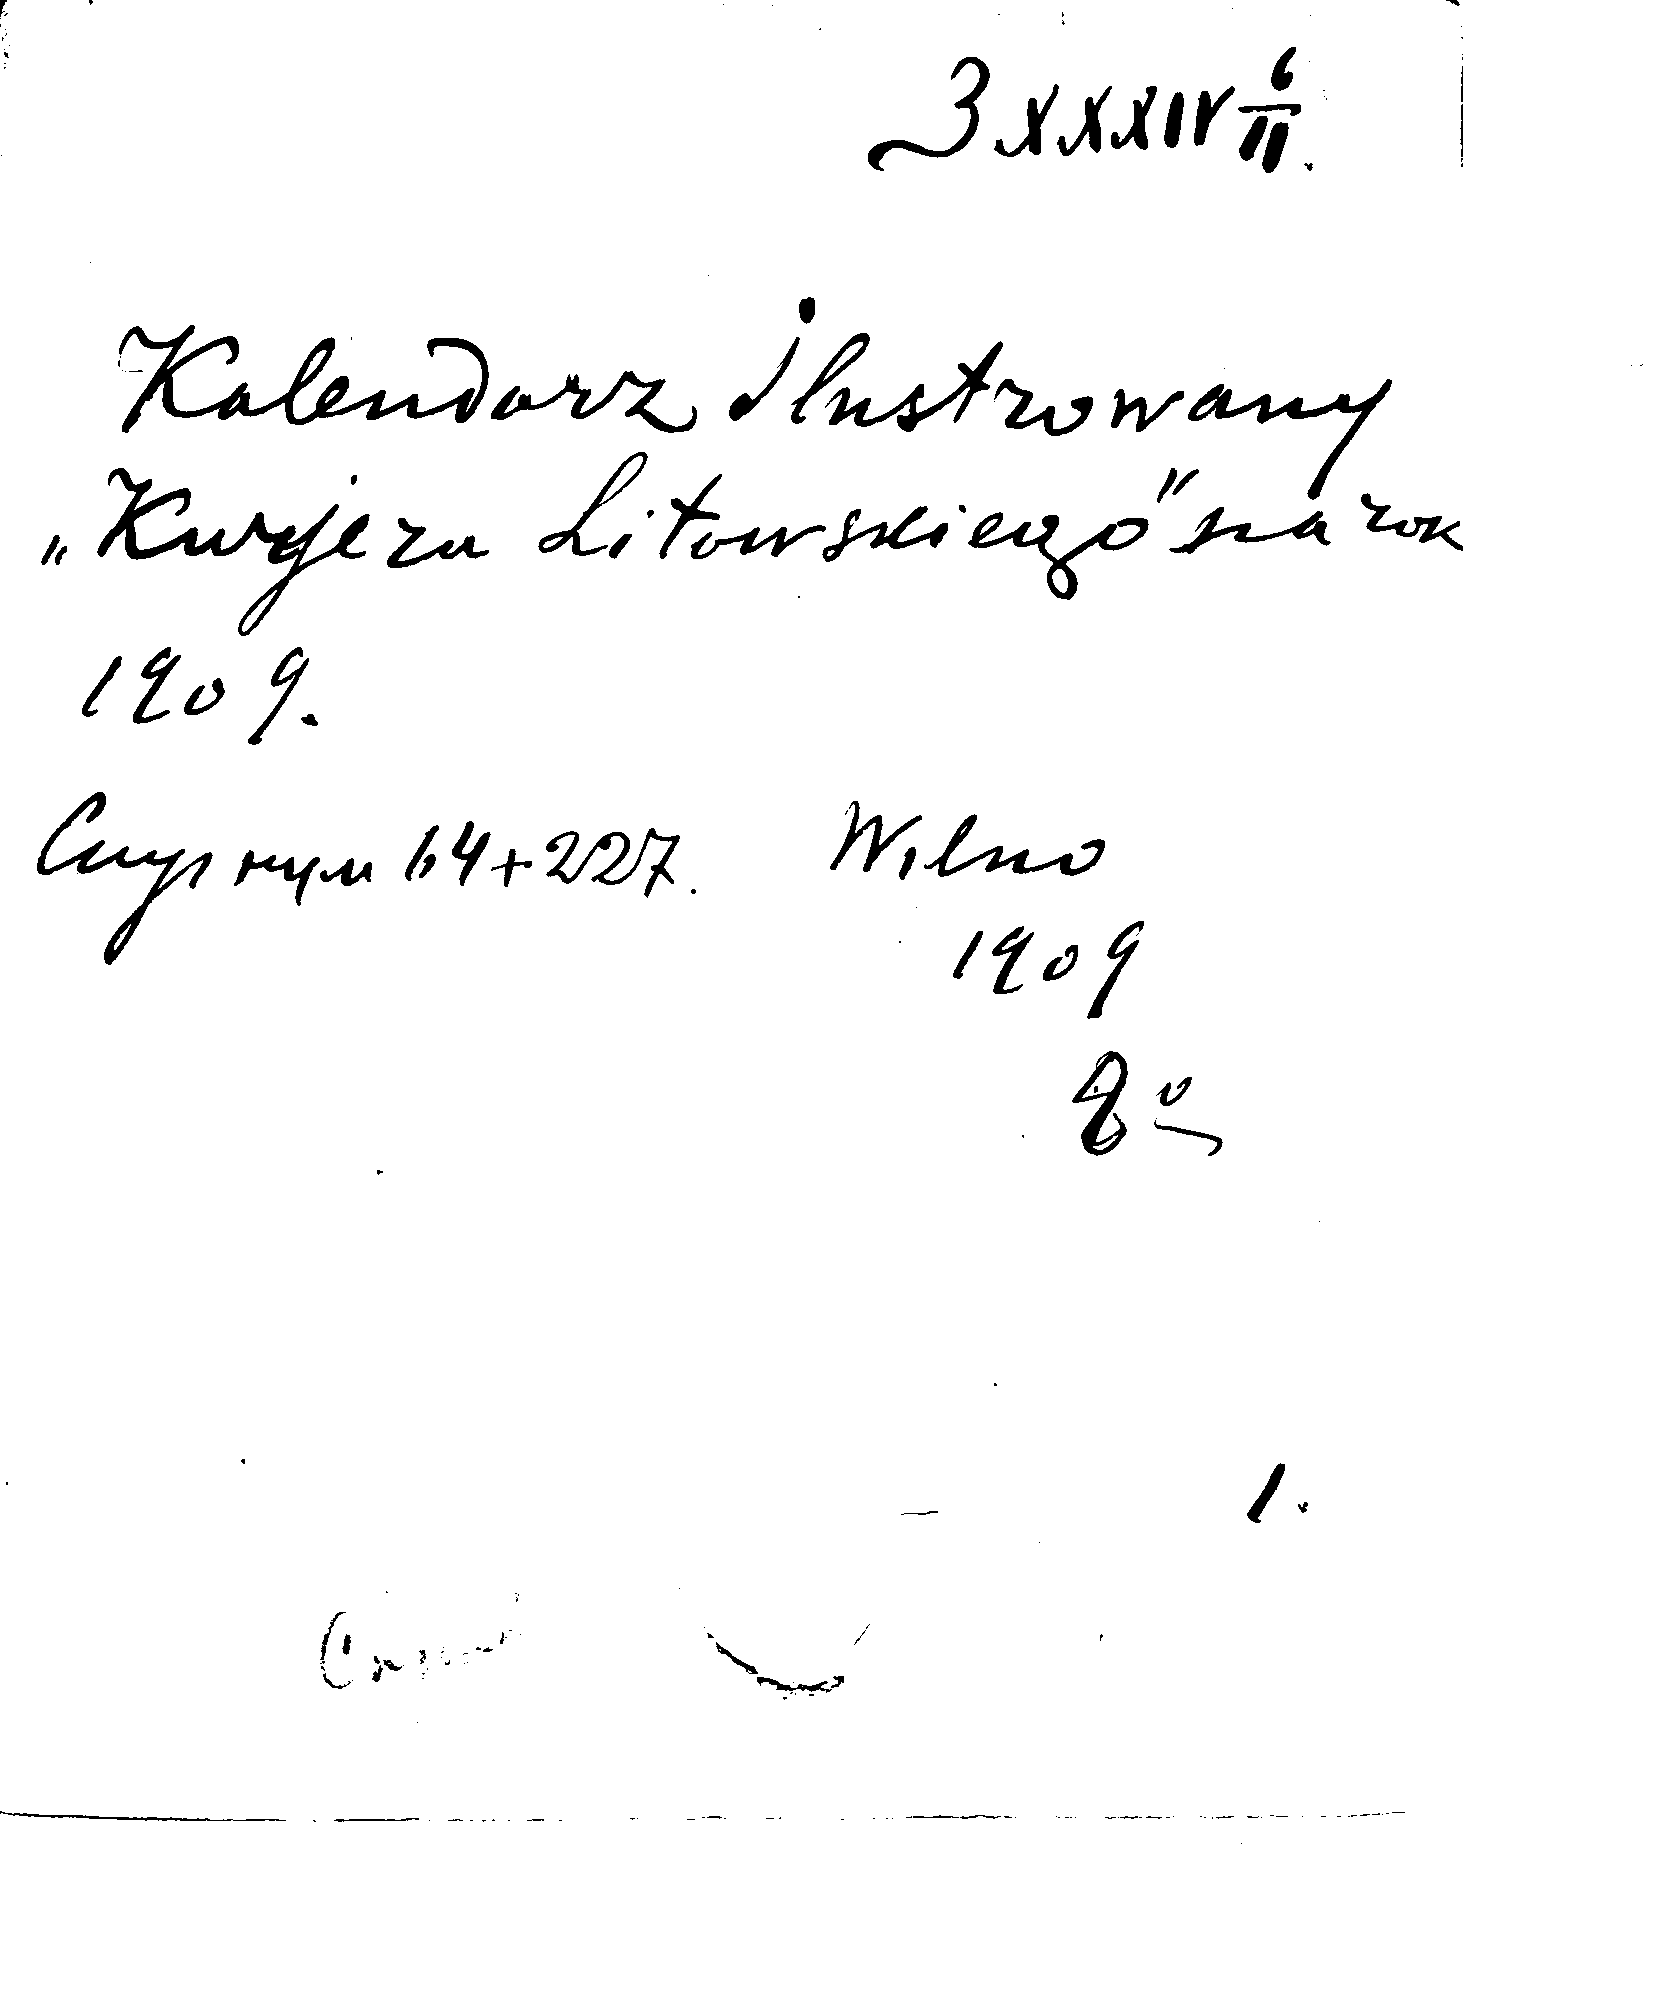 З XXXIV 6/II.
Kalendarz ilustrowany
„Kurjera Litowskiego" na rok
1909.
64+227. Wilno
1909
8º
1.